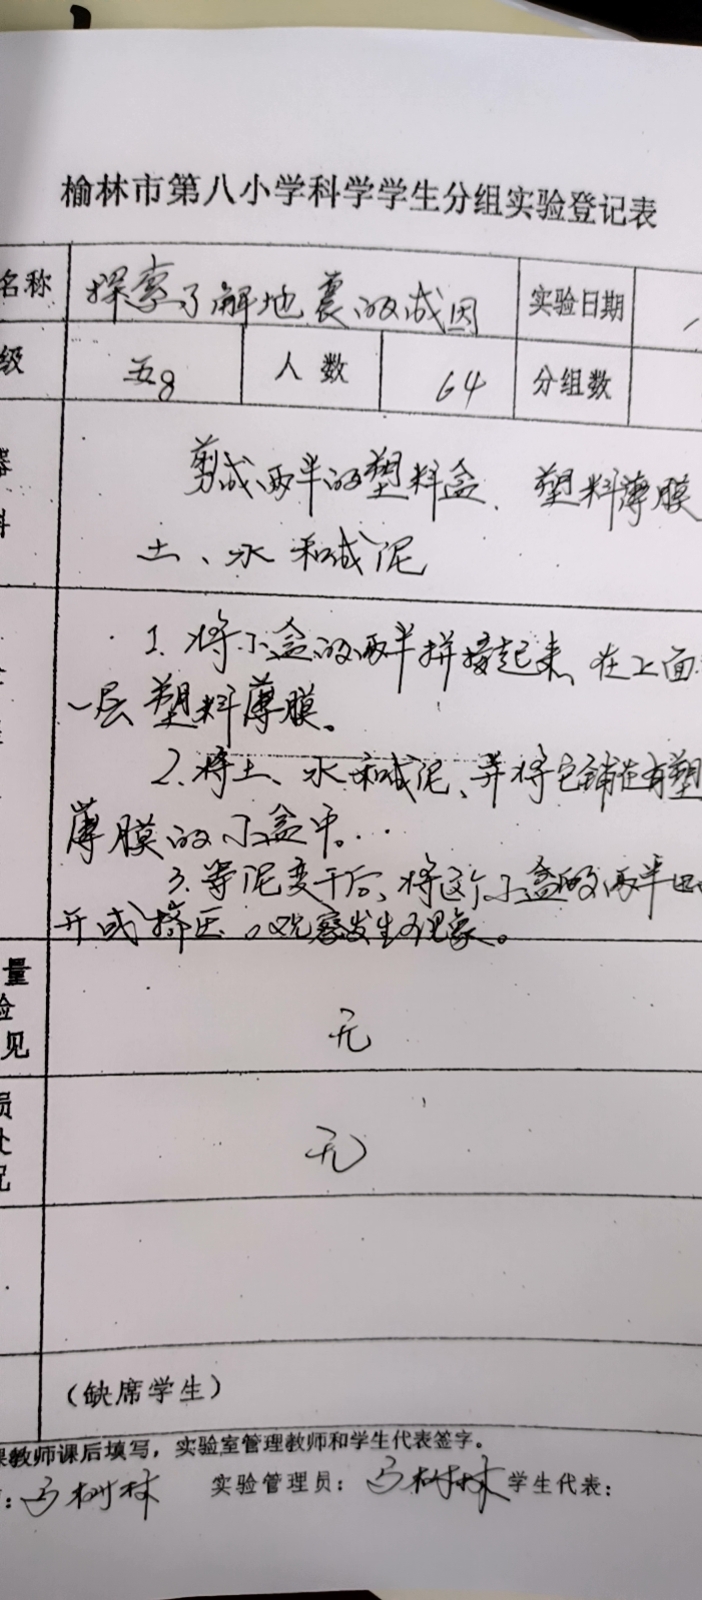 榆林市第八小学科学学生分组实验登记表
名称 探索了解地震的成因 实验日期
级 五8 人数 64 分组数
剪成两半的塑料盒、塑料薄膜
土、水和成泥
1.将小盒的两半拼接起来、在上面
一层塑料薄膜。
2.将土、水和成泥、并将它铺在有塑
薄膜的小盒中。
3.等泥变干后、将这个小盒的两半
开或挤压。观察发生的现象。
量
验
见 无
无
况
(缺席学生)
课教师课后填写，实验室管理教师和学生代表签字。
: 马树林 实验管理员: 马树林 学生代表: